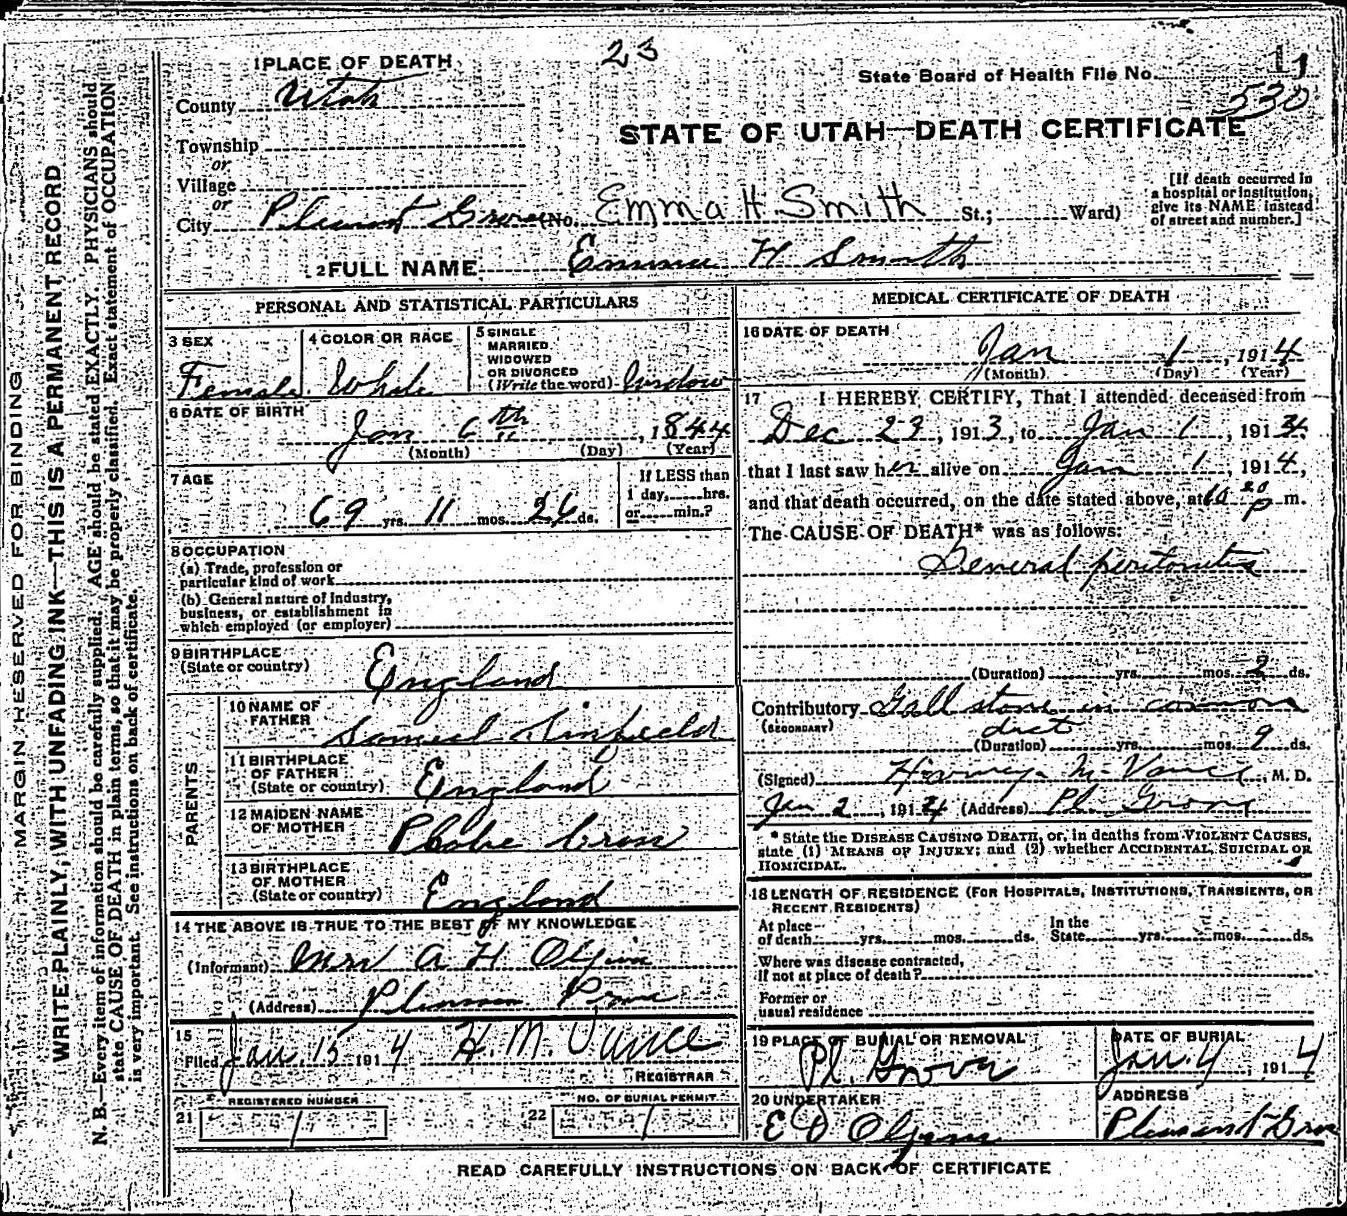 23
11
State Board of Health File No.
530
1 PLACE OF DEATH
County Utah
STATE OF UTAH—DEATH CERTIFICATE
Township
or
Village
or
City Pleasant Grove (No. Emma H. Smith St.; Ward)
[If death occurred in
a hospital or institution,
give its NAME instead
of street and number.]
2 FULL NAME Emma H Smith
PERSONAL AND STATISTICAL PARTICULARS
3 SEX
Female
4 COLOR OR RACE
White
5 SINGLE
MARRIED
WIDOWED
OR DIVORCED
(Write the word) Widow
6 DATE OF BIRTH
Jan 6th, 1844
(Month) (Day) (Year)
7 AGE
69 yrs. 11 mos. 26 ds.
If LESS than
1 day, hrs.
or min.?
8 OCCUPATION
(a) Trade, profession or
particular kind of work
(b) General nature of industry,
business, or establishment in
which employed (or employer)
9 BIRTHPLACE
(State or country)
England
PARENTS
10 NAME OF
FATHER
Samuel
11 BIRTHPLACE
OF FATHER
(State or country) England
12 MAIDEN NAME
OF MOTHER
Phobe
13 BIRTHPLACE
OF MOTHER
(State or country) England
14 THE ABOVE IS TRUE TO THE BEST OF MY KNOWLEDGE
(Informant) Mrs A H
(Address)
15
Filed Jan. 15 1914 H. M. Vance
REGISTRAR
21 REGISTERED NUMBER
1
22 NO. OF BURIAL PERMIT
1
MEDICAL CERTIFICATE OF DEATH
16 DATE OF DEATH
Jan 1, 1914
(Month) (Day) (Year)
17 I HEREBY CERTIFY, That I attended deceased from
Dec 23, 1913, to Jan 1, 1914,
that I last saw her alive on Jan 1, 1914,
and that death occurred, on the date stated above, at 10 20 P m.
The CAUSE OF DEATH* was as follows:
General peritonitis
(Duration) yrs. mos. 2 ds.
Contributory Gall stone in common
(SECONDARY) duct
(Duration) yrs. mos. 9 ds.
(Signed) M Vance, M. D.
Jan 2, 1914 (Address) Pl. Grove
* State the DISEASE CAUSING DEATH, or, in deaths from VIOLENT CAUSES,
state (1) MEANS OF INJURY; and (2) whether ACCIDENTAL, SUICIDAL OR
HOMICIDAL.
18 LENGTH OF RESIDENCE (FOR HOSPITALS, INSTITUTIONS, TRANSIENTS, OR
RECENT RESIDENTS)
At place
of death yrs. mos. ds.
In the
State yrs. mos. ds.
Where was disease contracted,
if not at place of death?
Former or
usual residence
19 PLACE OF BURIAL OR REMOVAL
Pl. Grove
DATE OF BURIAL
Jan. 4, 1914
20 UNDERTAKER
E D
ADDRESS
Pleasant Grove
READ CAREFULLY INSTRUCTIONS ON BACK OF CERTIFICATE
MARGIN RESERVED FOR BINDING
WRITE PLAINLY, WITH UNFADING INK—THIS IS A PERMANENT RECORD
N. B.—Every item of information should be carefully supplied. AGE should be stated EXACTLY. PHYSICIANS should
state CAUSE OF DEATH in plain terms, so that it may be properly classified. Exact statement of OCCUPATION
is very important. See instructions on back of certificate.